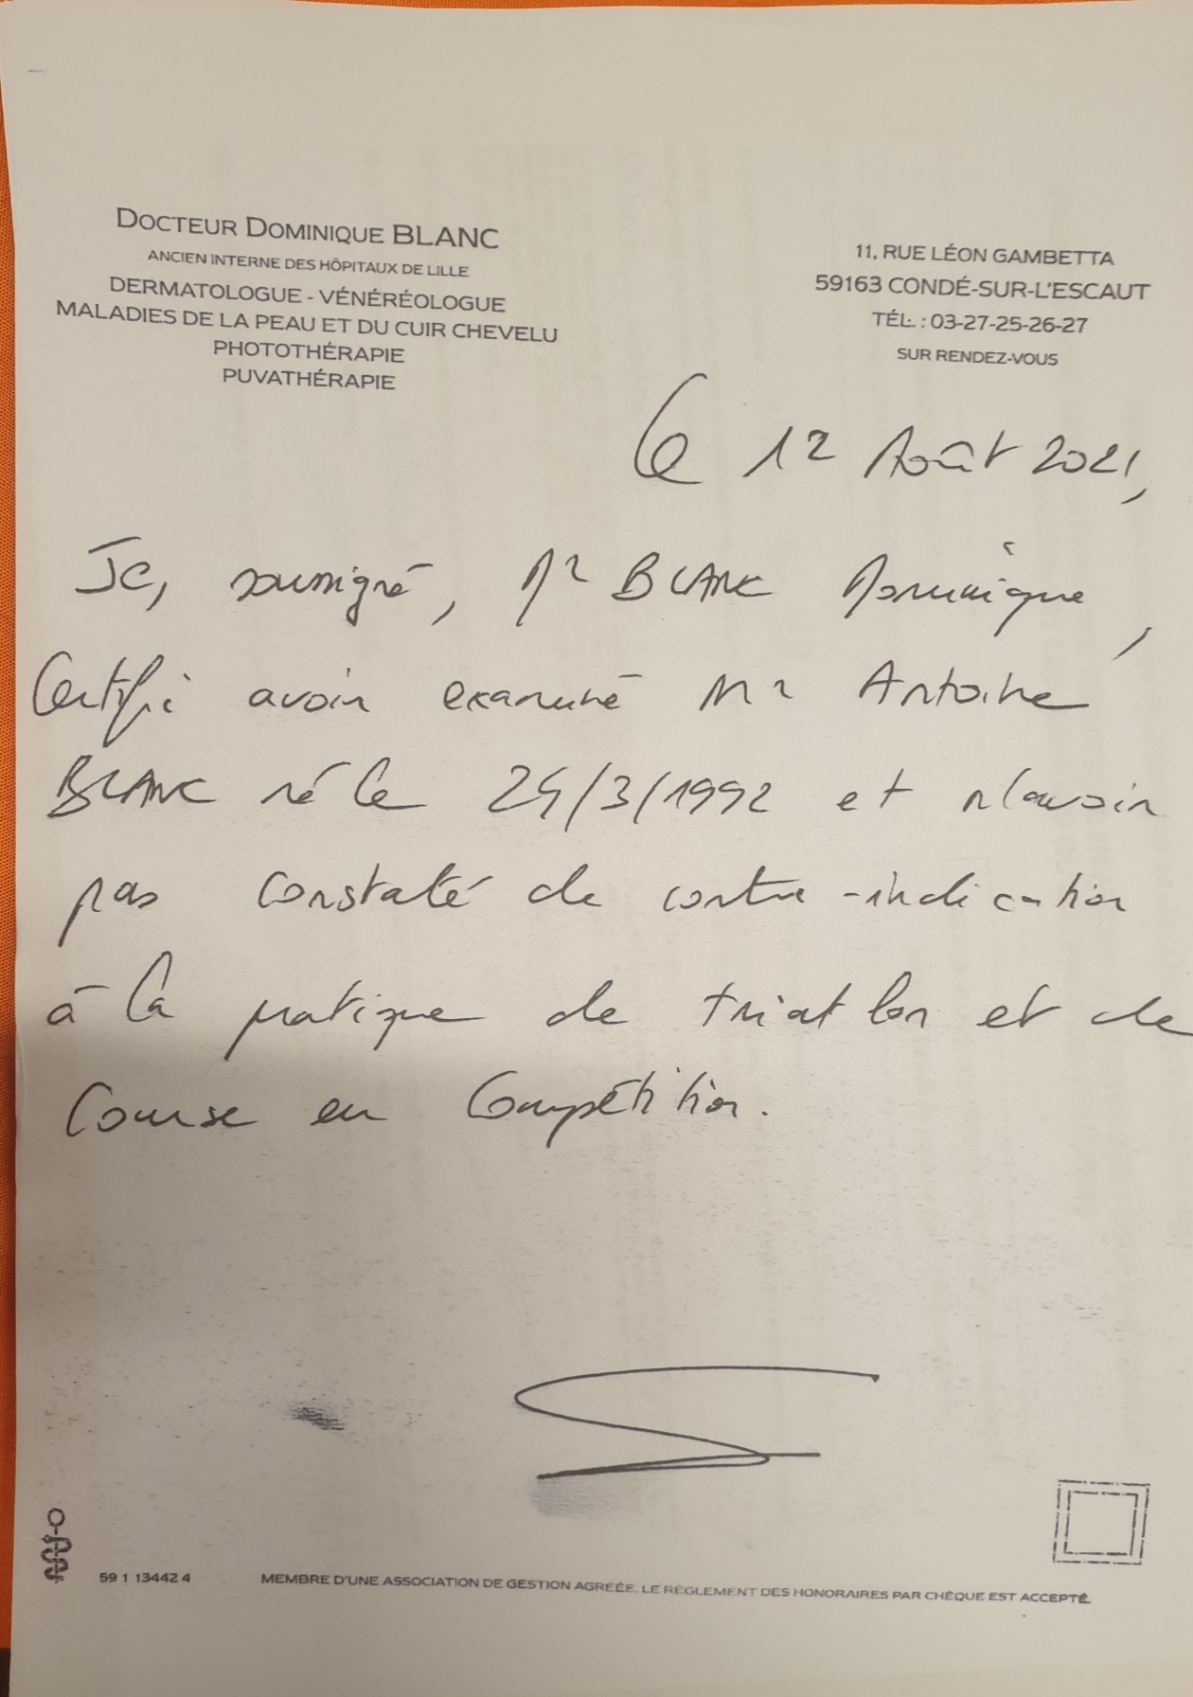 DOCTEUR DOMINIQUE BLANC
ANCIEN INTERNE DES HÔPITAUX DE LILLE
DERMATOLOGUE - VÉNÉRÉOLOGUE
MALADIES DE LA PEAU ET DU CUIR CHEVELU
PHOTOTHÉRAPIE
PUVATHÉRAPIE
11, RUE LÉON GAMBETTA
59163 CONDÉ-SUR-L'ESCAUT
TÉL. : 03-27-25-26-27
SUR RENDEZ-VOUS
Le 12 Août 2021,
Je, soussigné, Dr BLANC Dominique,
Certifie avoir examiné Mr Antoine
BLANC né le 24/3/1992 et n'avoir
pas constaté de contre-indication
à la pratique de triatlon et de
Course en Compétition.
59 1 13442 4
MEMBRE D'UNE ASSOCIATION DE GESTION AGRÉÉE, LE RÈGLEMENT DES HONORAIRES PAR CHÈQUE EST ACCEPTÉ.